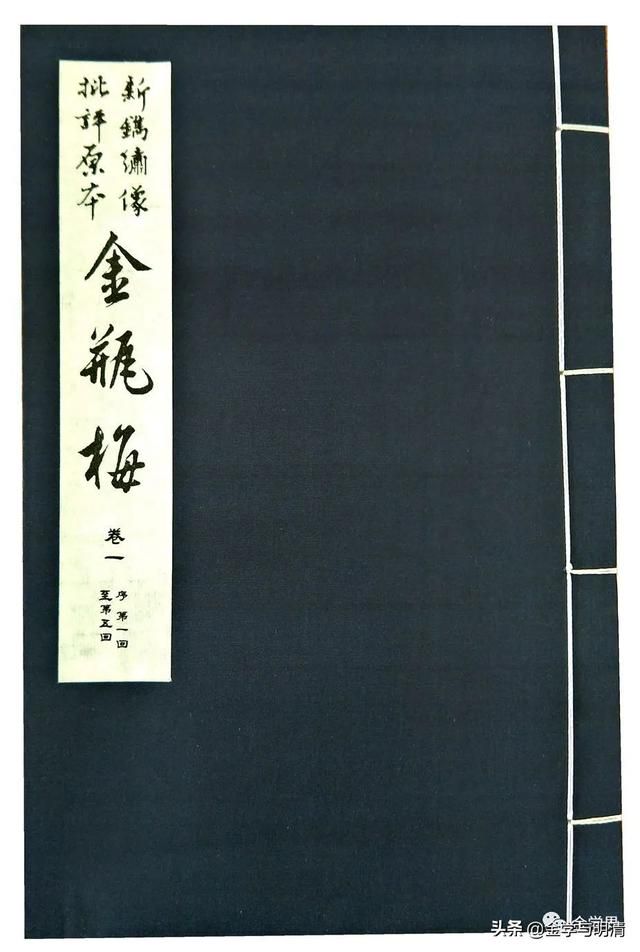 新鐫繡像
批評原本
金瓶梅
卷一
序 第一回
至第五回
金学界
头条 @金学与明清